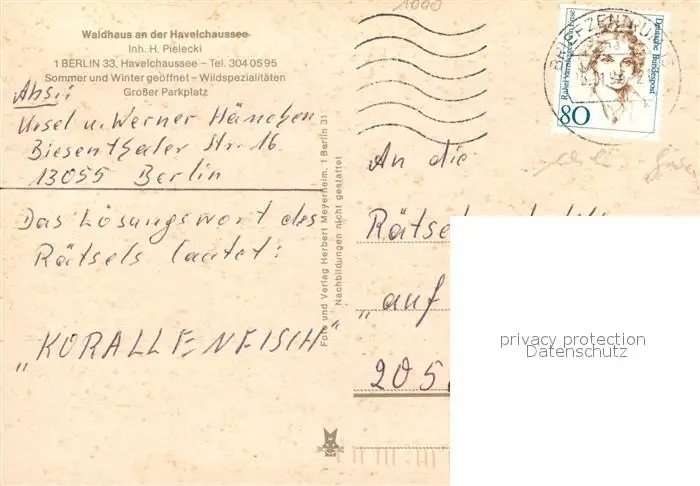 Waldhaus an der Havelchaussee
Inh. H. Pielecki
1 BERLIN 33, Havelchaussee – Tel. 304 05 95
Sommer und Winter geöffnet – Wildspezialitäten
Großer Parkplatz
Abs.:
Ursel u. Werner Hänchen
Biesenthaler Str. 16
13055 Berlin
Das Lösungswort des
Rätsels lautet:
„KORALLENFISCH"
Foto und Verlag Herbert Meyerheim, 1 Berlin 31
Nachbildungen nicht gestattet
1000
BRIEFZENTRUM
Deutsche Bundespost
Rahel Varnhagen von Ense
80
An die
„auf
205
privacy protection
Datenschutz